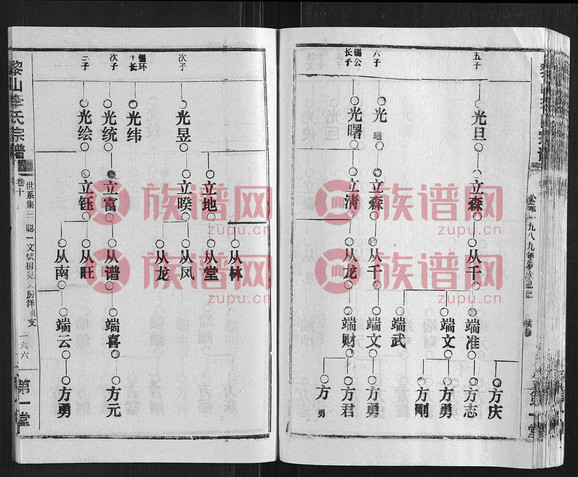 五子
六子
锡公
长子
光旦
光
光曙
立森
立森
立清
从千
从千
从龙
端准
端文
端武
端文
端财
方庆
方志
方勇
方刚
方勇
方君
方勇
次子
锡环
长子
次子
三子
光昱
光纬
光统
光绘
立地
立暌
立富
立钰
从林
从堂
从凤
从龙
从谱
从旺
从南
端喜
端云
方元
方勇
黎山李氏宗谱
卷十
世系集三
一六六
第一堂
族谱网
zupu.cn
族谱网
zupu.cn
族谱网
zupu.cn
族谱网
zupu.cn